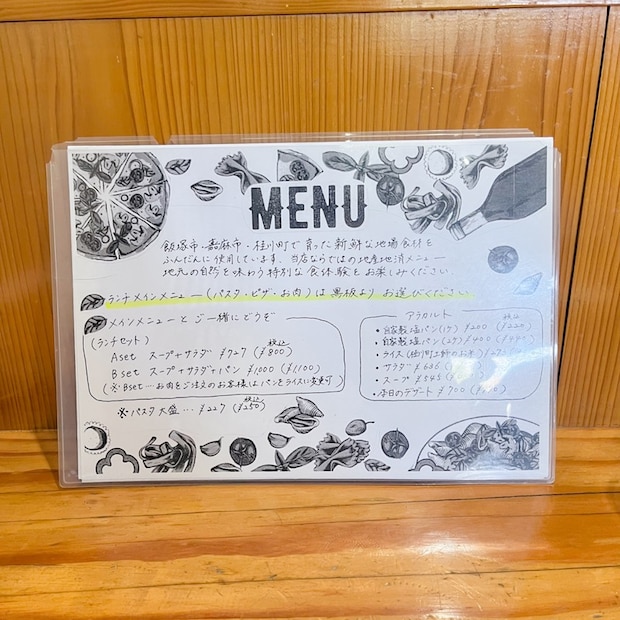 MENU
飯塚市・嘉麻市・桂川町で育った新鮮な地場食材を
ふんだんに使用しています。当店ならではの地産地消メニュー
地元の自然を味わう特別な食体験をお楽しみください
ランチメインメニュー(パスタ・ピザ・お肉)は黒板よりお選びください
メインメニューとご一緒にどうぞ
(ランチセット) 税込
Aset スープ+サラダ ¥727 (¥800)
Bset スープ+サラダ+パン ¥1000 (¥1,100)
(※Bset…お肉をご注文のお客様はパンをライスに変更可)
税込
※パスタ大盛… ¥227 (¥250)
アラカルト
税込
・自家製塩パン(1ケ) ¥200 (¥220)
・自家製塩パン(2ケ) ¥400 (¥440)
・ライス(桂川町
・サラダ ¥636
・スープ ¥545
・本日のデザート ¥700